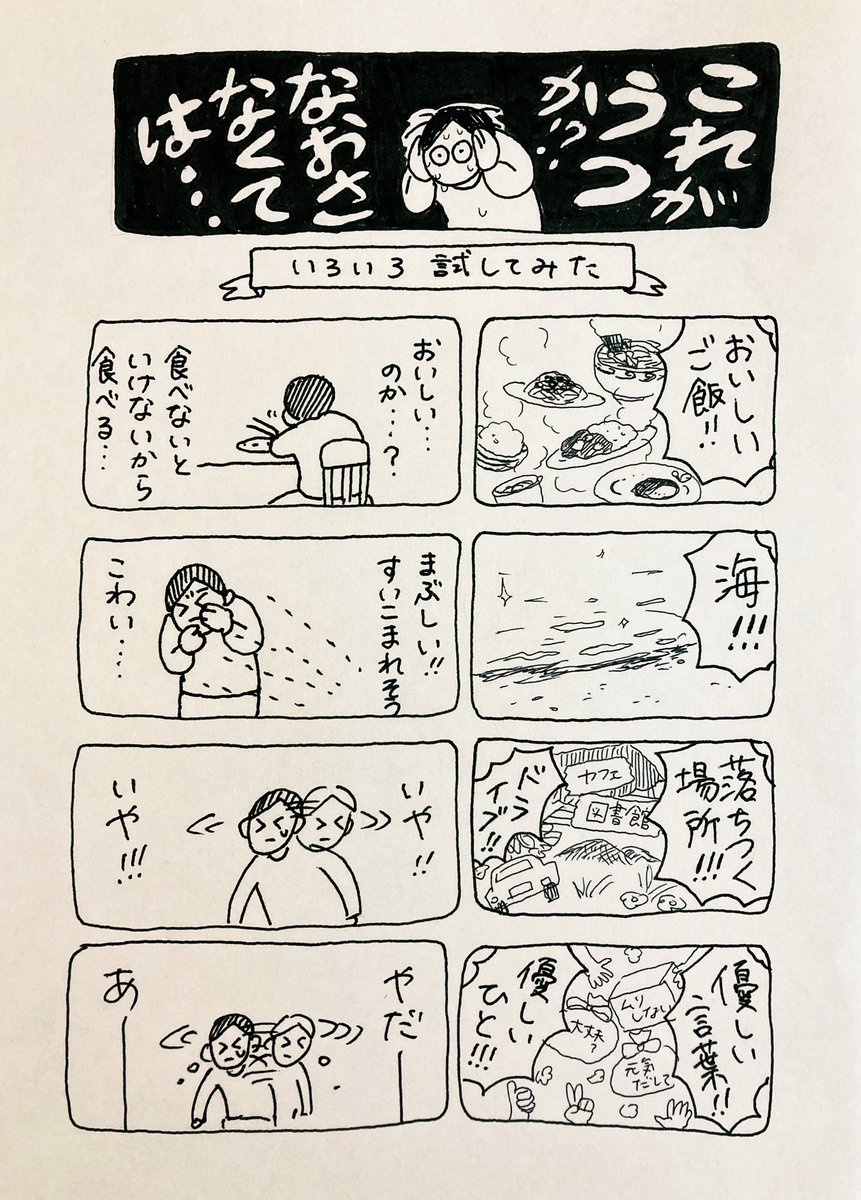 これが
うつ
か!?
なおさ
なくて
は・・・
いろいろ 試してみた
おいしい
ご飯!!
おいしい…
のか…?
食べないと
いけないから
食べる…
海!!!
まぶしい!!
すいこまれそう
こわい・・・・
落ちつく
場所!!!
カフェ
図書館
ドラ
イブ!!
いや!!
いや!!!
優しい
言葉!!
ムリ
しない
大丈夫?
元気
だして
優しい
ひと!!!
やだー
あー